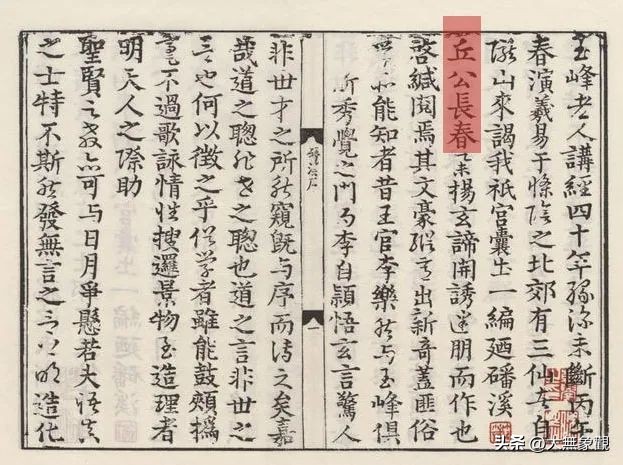 玉峰老人講經四十年孜孜未斷丙午
春演羲易于條陰之北郊有三仙友自
隴山來謁我祇宫囊出一編廼磻溪
丘公長春子揚玄諦開誘迷朋而作也
啓緘閱焉其文豪縱高出新奇蓋匪俗
學所能知者昔王官李樂然与玉峰俱
所秀覺之門乃李自穎悟玄言驚人
磻溪序
一
非世才之所能窺旣与序而傳之矣嘉
哉道之聰非世之聰也道之言非世之
言也何以徵之乎俗学者雖能鼓頰搖
毫不過歌詠情性搜邏景物至造理者
明天人之際助
聖賢之教亦可与日月爭懸若夫語其
之士特不斯能發無言之言以明造化
头条 @大無象觀